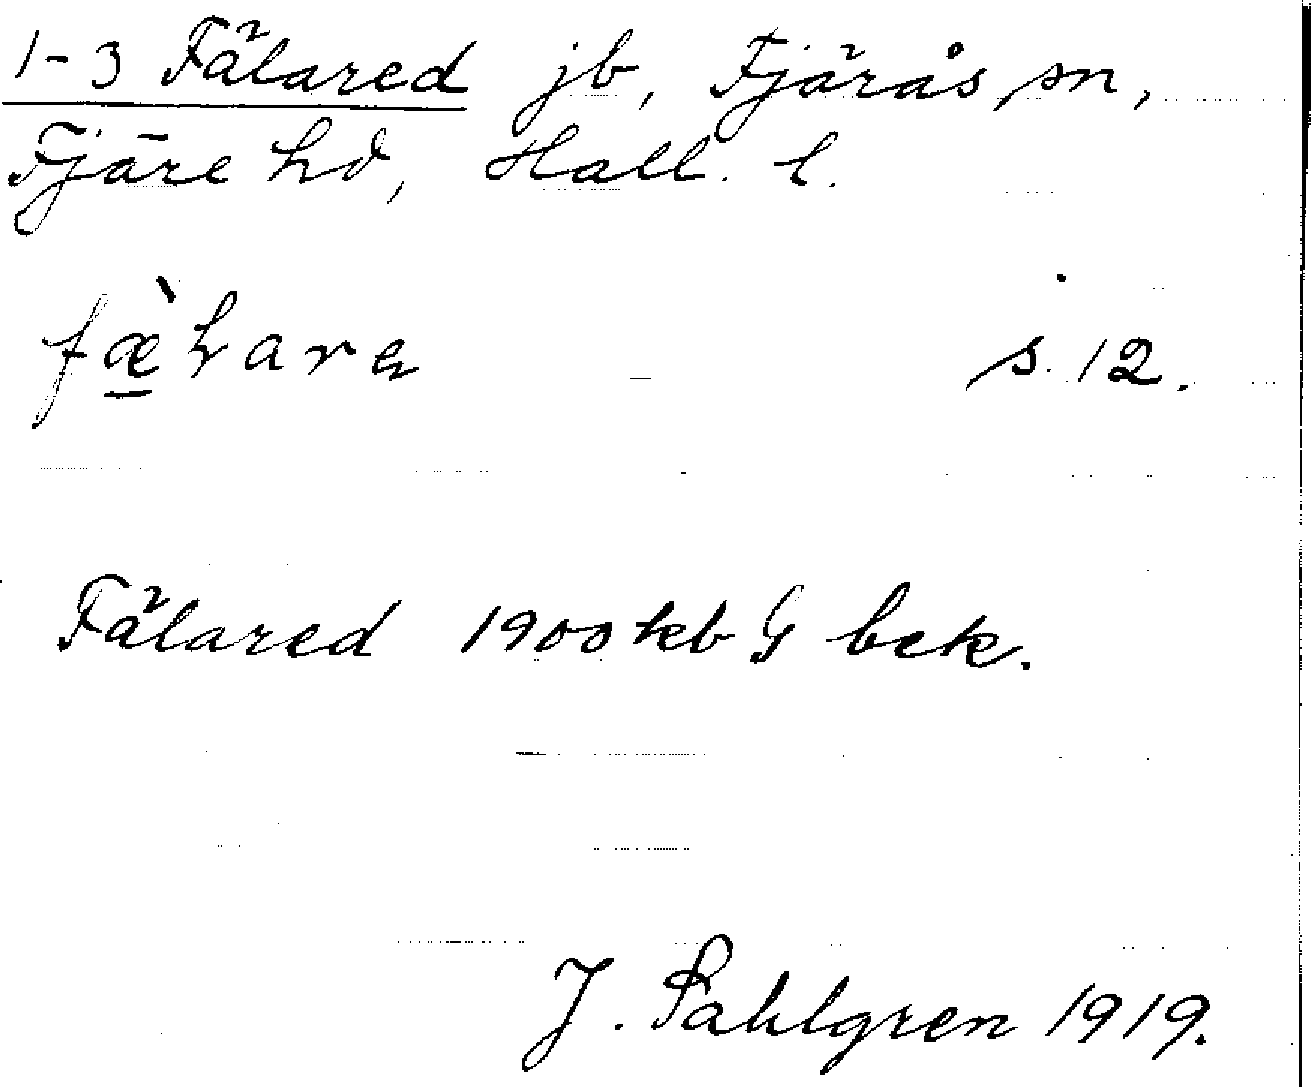 1-3 Fälared jb, Fjärås sn,
Fjäre hd, Hall. l.
s. 12.
Fälared 1900 kb G bek.
J. Sahlgren 1919.